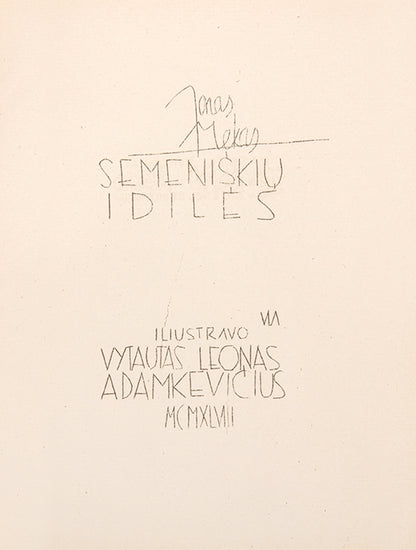 Jonas
Mekas
SEMENIŠKIŲ
IDILĖS
VLA
ILIUSTRAVO
VYTAUTAS LEONAS
ADAMKEVIČIUS
MCMXLVII